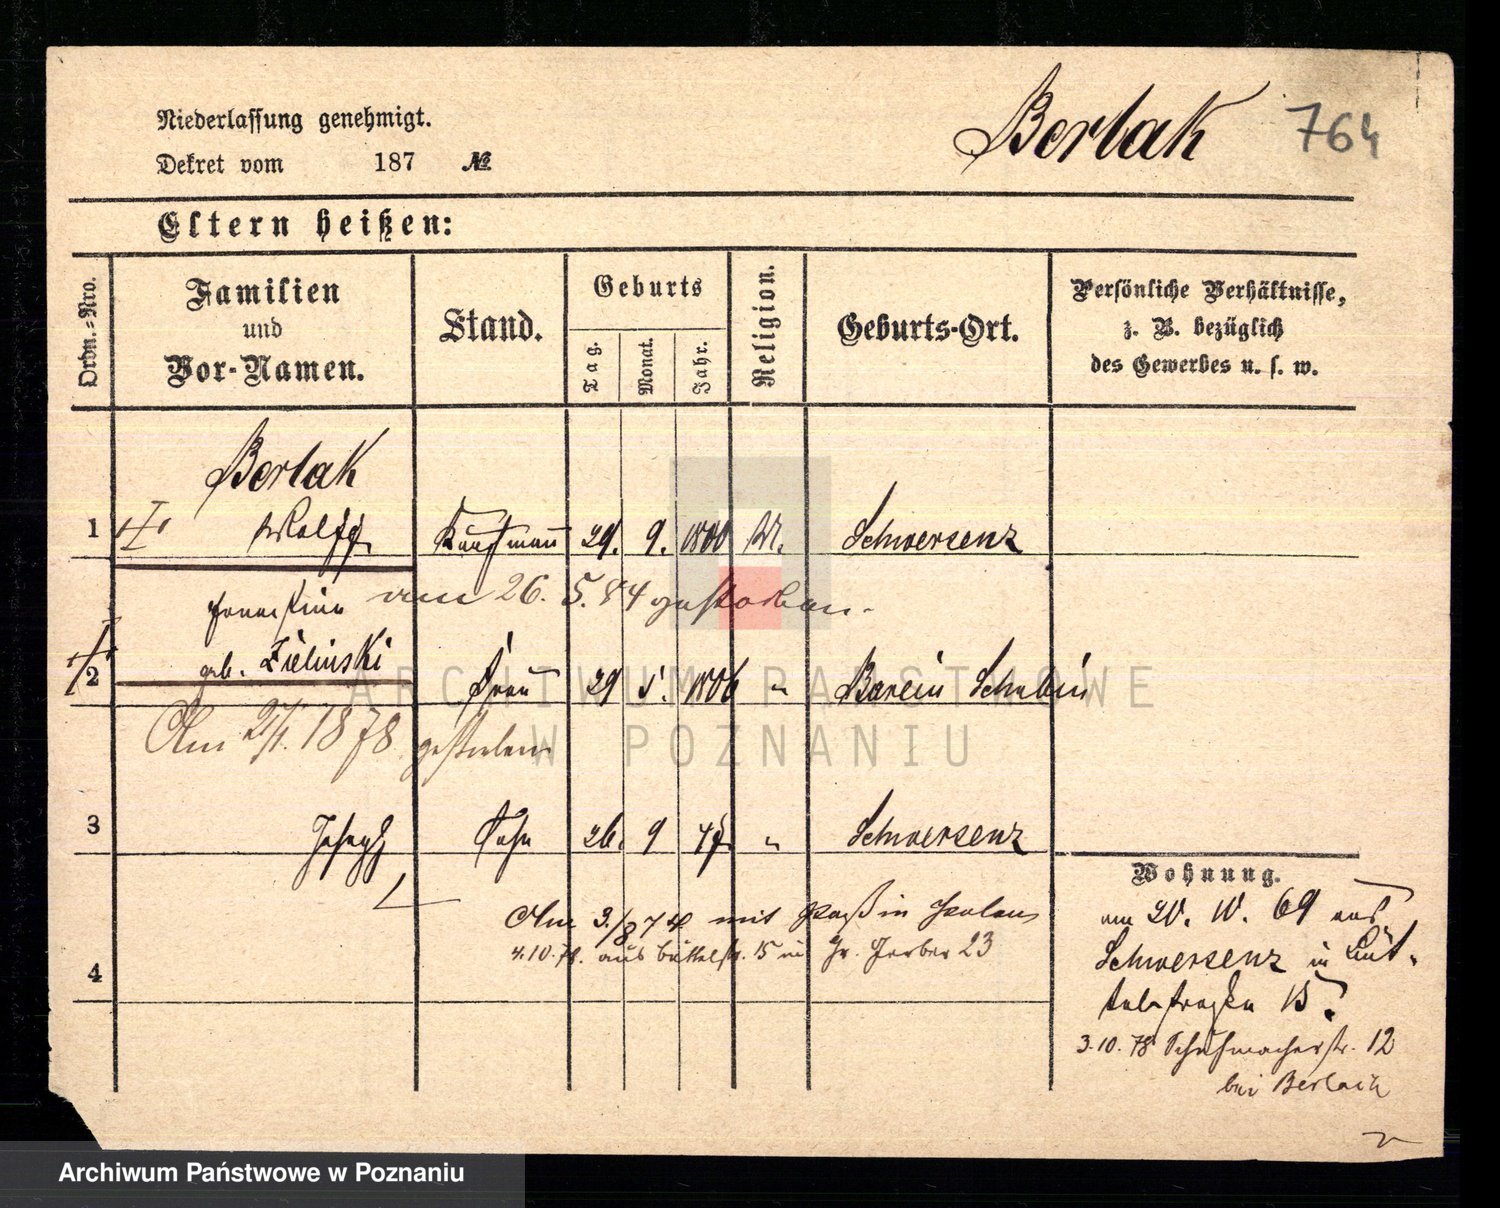 Niederlassung genehmigt.
Dekret vom 187 №
Berlak 764
Eltern heißen:
Ordn.=Nro.
Familien
und
Vor-Namen.
Stand.
Geburts
Tag.
Monat.
Jahr.
Religion.
Geburts-Ort.
Persönliche Verhältnisse,
z. B. bezüglich
des Gewerbes u. s. w.
Berlak
1 Wolff Kaufmann 29. 9. 1800 M. Schwersenz
am 26. 5. 84 gestorben.
Ernestine
2 geb. Zielinski Frau 29 5. 1806 " Barcin Schubin
Am 1878 gestorben
3 Joseph Sohn 26. 9 47 " Schwersenz
Am 3./8 74 mit Paß in Polen
4.10.78. aus Büttelstr. 15 in Gr. Gerber 23
4
Wohnung.
am 20. 10. 69 aus
Schwersenz in Büt-
telstraße 15.
3.10.78 Schuhmacherstr. 12
bei Berlak
ARCHIWUM PAŃSTWOWE
W POZNANIU
Archiwum Państwowe w Poznaniu